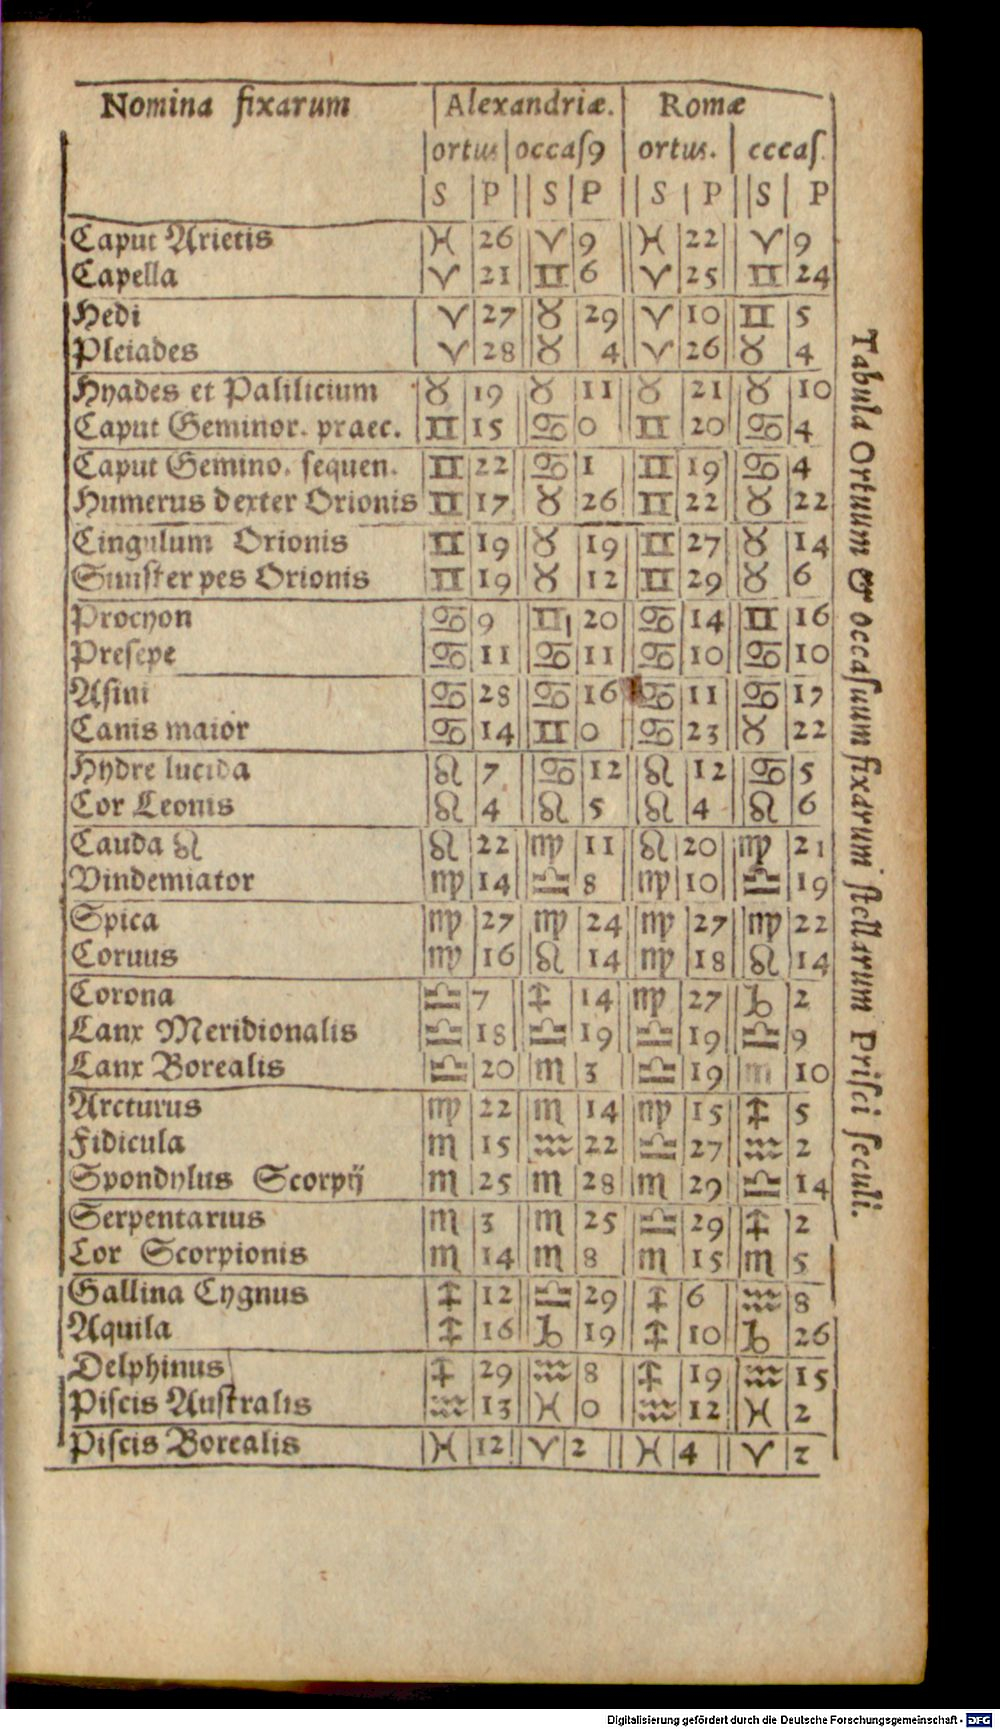 Nomina fixarum Alexandriæ. Romæ
ortus occasꝰ ortus. cccaſ.
S P S P S P S P
Caput Arietis ♓ 26 ♈ 9 ♓ 22 ♈ 9
Capella ♈ 21 ♊ 6 ♈ 25 ♊ 24
Hedi ♈ 27 ♉ 29 ♈ 10 ♊ 5
Pleiades ♈ 28 ♉ 4 ♈ 26 ♉ 4
Hyades et Palilicium ♉ 19 ♉ 11 ♉ 21 ♉ 10
Caput Geminor. praec. ♊ 15 ♋ 0 ♊ 20 ♋ 4
Caput Gemino. ſequen. ♊ 22 ♋ 1 ♊ 19 ♋ 4
Humerus dexter Orionis ♊ 17 ♉ 26 ♊ 22 ♉ 22
Cingulum Orionis ♊ 19 ♉ 19 ♊ 27 ♉ 14
Siniſter pes Orionis ♊ 19 ♉ 12 ♊ 29 ♉ 6
Procyon ♋ 9 ♊ 20 ♋ 14 ♊ 16
Preſepe ♋ 11 ♋ 11 ♋ 10 ♋ 10
Aſini ♋ 28 ♋ 16 ♋ 11 ♋ 17
Canis maior ♋ 14 ♊ 0 ♋ 23 ♉ 22
Hydre lucida ♌ 7 ♋ 12 ♌ 12 ♋ 5
Cor Leonis ♌ 4 ♌ 5 ♌ 4 ♌ 6
Cauda ♌ ♌ 22 ♍ 11 ♌ 20 ♍ 21
Vindemiator ♍ 14 ♎ 8 ♍ 10 ♎ 19
Spica ♍ 27 ♍ 24 ♍ 27 ♍ 22
Coruus ♍ 16 ♌ 14 ♍ 18 ♌ 14
Corona ♎ 7 ♐ 14 ♍ 27 ♑ 2
Lanx Meridionalis ♎ 18 ♎ 19 ♎ 19 ♎ 9
Lanx Borealis ♎ 20 ♏ 3 ♎ 19 ♏ 10
Arcturus ♍ 22 ♏ 14 ♍ 15 ♐ 5
Fidicula ♏ 15 ♒ 22 ♎ 27 ♒ 2
Spondylus Scorpij ♏ 25 ♏ 28 ♏ 29 ♎ 14
Serpentarius ♏ 3 ♏ 25 ♎ 29 ♐ 2
Cor Scorpionis ♏ 14 ♏ 8 ♏ 15 ♏ 5
Gallina Cygnus ♐ 12 ♎ 29 ♐ 6 ♒ 8
Aquila ♐ 16 ♑ 19 ♐ 10 ♑ 26
Delphinus ♐ 29 ♒ 8 ♐ 19 ♒ 15
Piſcis Auſtralis ♒ 13 ♓ 0 ♒ 12 ♓ 2
Piſcis Borealis ♓ 12 ♈ 2 ♓ 4 ♈ 2
Tabula Ortuum & occaſuum fixarum ſtellarum Priſci ſeculi.
Digitalisierung gefördert durch die Deutsche Forschungsgemeinschaft - DFG